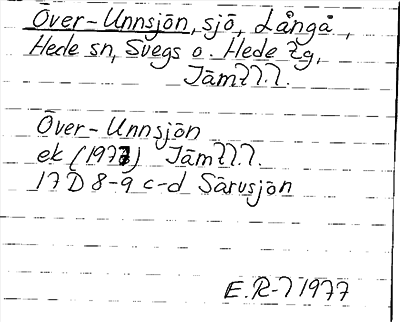 Över-Unnsjön, sjö, Långå,
Hede sn, Svegs o. Hede tg,
Jämtl. l.
Över-Unnsjön
ek (1973) Jämtl. l.
17D 8-9 c-d Särvsjön
E. R-l 1977